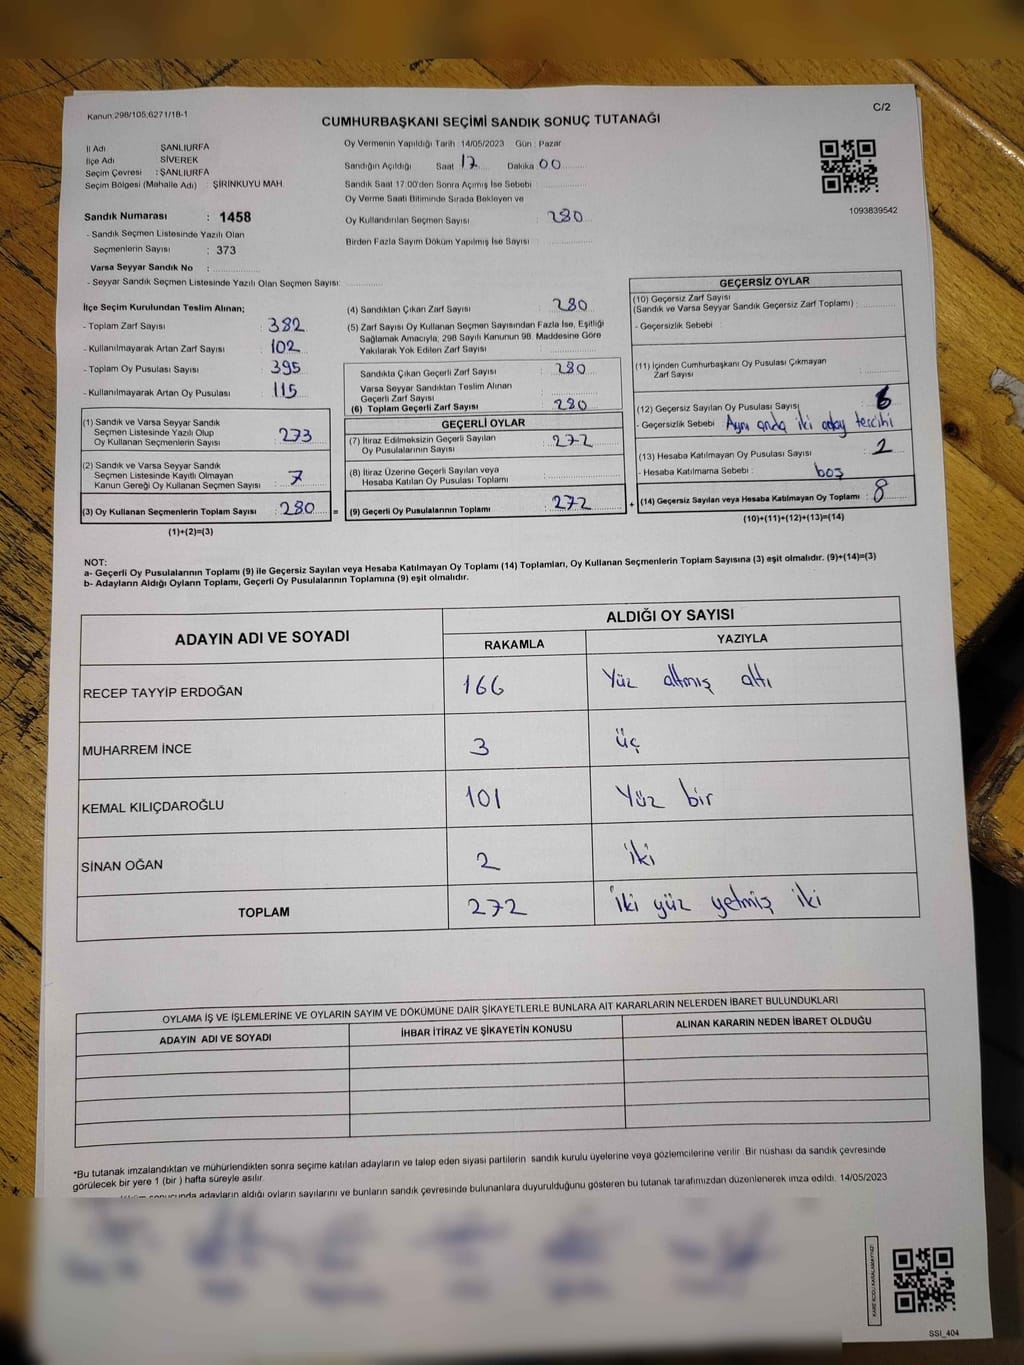 Kanun:298/105;6271/18-1
C/2
CUMHURBAŞKANI SEÇİMİ SANDIK SONUÇ TUTANAĞI
İl Adı ŞANLIURFA
İlçe Adı SİVEREK
Seçim Çevresi : ŞANLIURFA
Seçim Bölgesi (Mahalle Adı) : ŞİRİNKUYU MAH.
Sandık Numarası : 1458
- Sandık Seçmen Listesinde Yazılı Olan
Seçmenlerin Sayısı : 373
Varsa Seyyar Sandık No :
- Seyyar Sandık Seçmen Listesinde Yazılı Olan Seçmen Sayısı:
Oy Vermenin Yapıldığı Tarih : 14/05/2023 Gün : Pazar
Sandığın Açıldığı Saat 17 Dakika 00
Sandık Saat 17:00'den Sonra Açımış İse Sebebi :
Oy Verme Saati Bitiminde Sırada Bekleyen ve
Oy Kullandırılan Seçmen Sayısı : 280
Birden Fazla Sayım Döküm Yapılmış İse Sayısı :
1093839542
İlçe Seçim Kurulundan Teslim Alınan;
- Toplam Zarf Sayısı : 382
- Kullanılmayarak Artan Zarf Sayısı : 102
- Toplam Oy Pusulası Sayısı : 395
- Kullanılmayarak Artan Oy Pusulası : 115
(1) Sandık ve Varsa Seyyar Sandık
Seçmen Listesinde Yazılı Olup
Oy Kullanan Seçmenlerin Sayısı : 273
(2) Sandık ve Varsa Seyyar Sandık
Seçmen Listesinde Kayıtlı Olmayan
Kanun Gereği Oy Kullanan Seçmen Sayısı : 7
(3) Oy Kullanan Seçmenlerin Toplam Sayısı : 280 =
(1)+(2)=(3)
(4) Sandıktan Çıkan Zarf Sayısı : 280
(5) Zarf Sayısı Oy Kullanan Seçmen Sayısından Fazla İse, Eşitliği
Sağlamak Amacıyla, 298 Sayılı Kanunun 98. Maddesine Göre
Yakılarak Yok Edilen Zarf Sayısı :
Sandıkta Çıkan Geçerli Zarf Sayısı : 280
Varsa Seyyar Sandıktan Teslim Alınan
Geçerli Zarf Sayısı :
(6) Toplam Geçerli Zarf Sayısı : 280
GEÇERLİ OYLAR
(7) İtiraz Edilmeksizin Geçerli Sayılan
Oy Pusulalarının Sayısı : 272
(8) İtiraz Üzerine Geçerli Sayılan veya
Hesaba Katılan Oy Pusulası Toplamı :
(9) Geçerli Oy Pusulalarının Toplamı : 272 +
GEÇERSİZ OYLAR
(10) Geçersiz Zarf Sayısı
(Sandık ve Varsa Seyyar Sandık Geçersiz Zarf Toplamı) :
- Geçersizlik Sebebi :
(11) İçinden Cumhurbaşkanı Oy Pusulası Çıkmayan
Zarf Sayısı :
(12) Geçersiz Sayılan Oy Pusulası Sayısı : 6
- Geçersizlik Sebebi Aynı anda iki aday tercihi
(13) Hesaba Katılmayan Oy Pusulası Sayısı : 2
- Hesaba Katılmama Sebebi : boş
(14) Geçersiz Sayılan veya Hesaba Katılmayan Oy Toplamı : 8
(10)+(11)+(12)+(13)=(14)
NOT:
a- Geçerli Oy Pusulalarının Toplamı (9) ile Geçersiz Sayılan veya Hesaba Katılmayan Oy Toplamı (14) Toplamları, Oy Kullanan Seçmenlerin Toplam Sayısına (3) eşit olmalıdır. (9)+(14)=(3)
b- Adayların Aldığı Oyların Toplamı, Geçerli Oy Pusulalarının Toplamına (9) eşit olmalıdır.
ADAYIN ADI VE SOYADI
ALDIĞI OY SAYISI
RAKAMLA YAZIYLA
RECEP TAYYİP ERDOĞAN 166 Yüz altmış altı
MUHARREM İNCE 3 üç
KEMAL KILIÇDAROĞLU 101 Yüz bir
SİNAN OĞAN 2 iki
TOPLAM 272 iki yüz yetmiş iki
OYLAMA İŞ VE İŞLEMLERİNE VE OYLARIN SAYIM VE DÖKÜMÜNE DAİR ŞİKAYETLERLE BUNLARA AİT KARARLARIN NELERDEN İBARET BULUNDUKLARI
ADAYIN ADI VE SOYADI İHBAR İTİRAZ VE ŞİKAYETİN KONUSU ALINAN KARARIN NEDEN İBARET OLDUĞU
*Bu tutanak imzalandıktan ve mühürlendikten sonra seçime katılan adayların ve talep eden siyasi partilerin sandık kurulu üyelerine veya gözlemcilerine verilir. Bir nüshası da sandık çevresinde
görülecek bir yere 1 (bir ) hafta süreyle asılır.
sonucunda adayların aldığı oyların sayılarını ve bunların sandık çevresinde bulunanlara duyurulduğunu gösteren bu tutanak tarafımızdan düzenlenerek imza edildi. 14/05/2023
KARE KODU KARALAMAYINIZ!
SSI_404